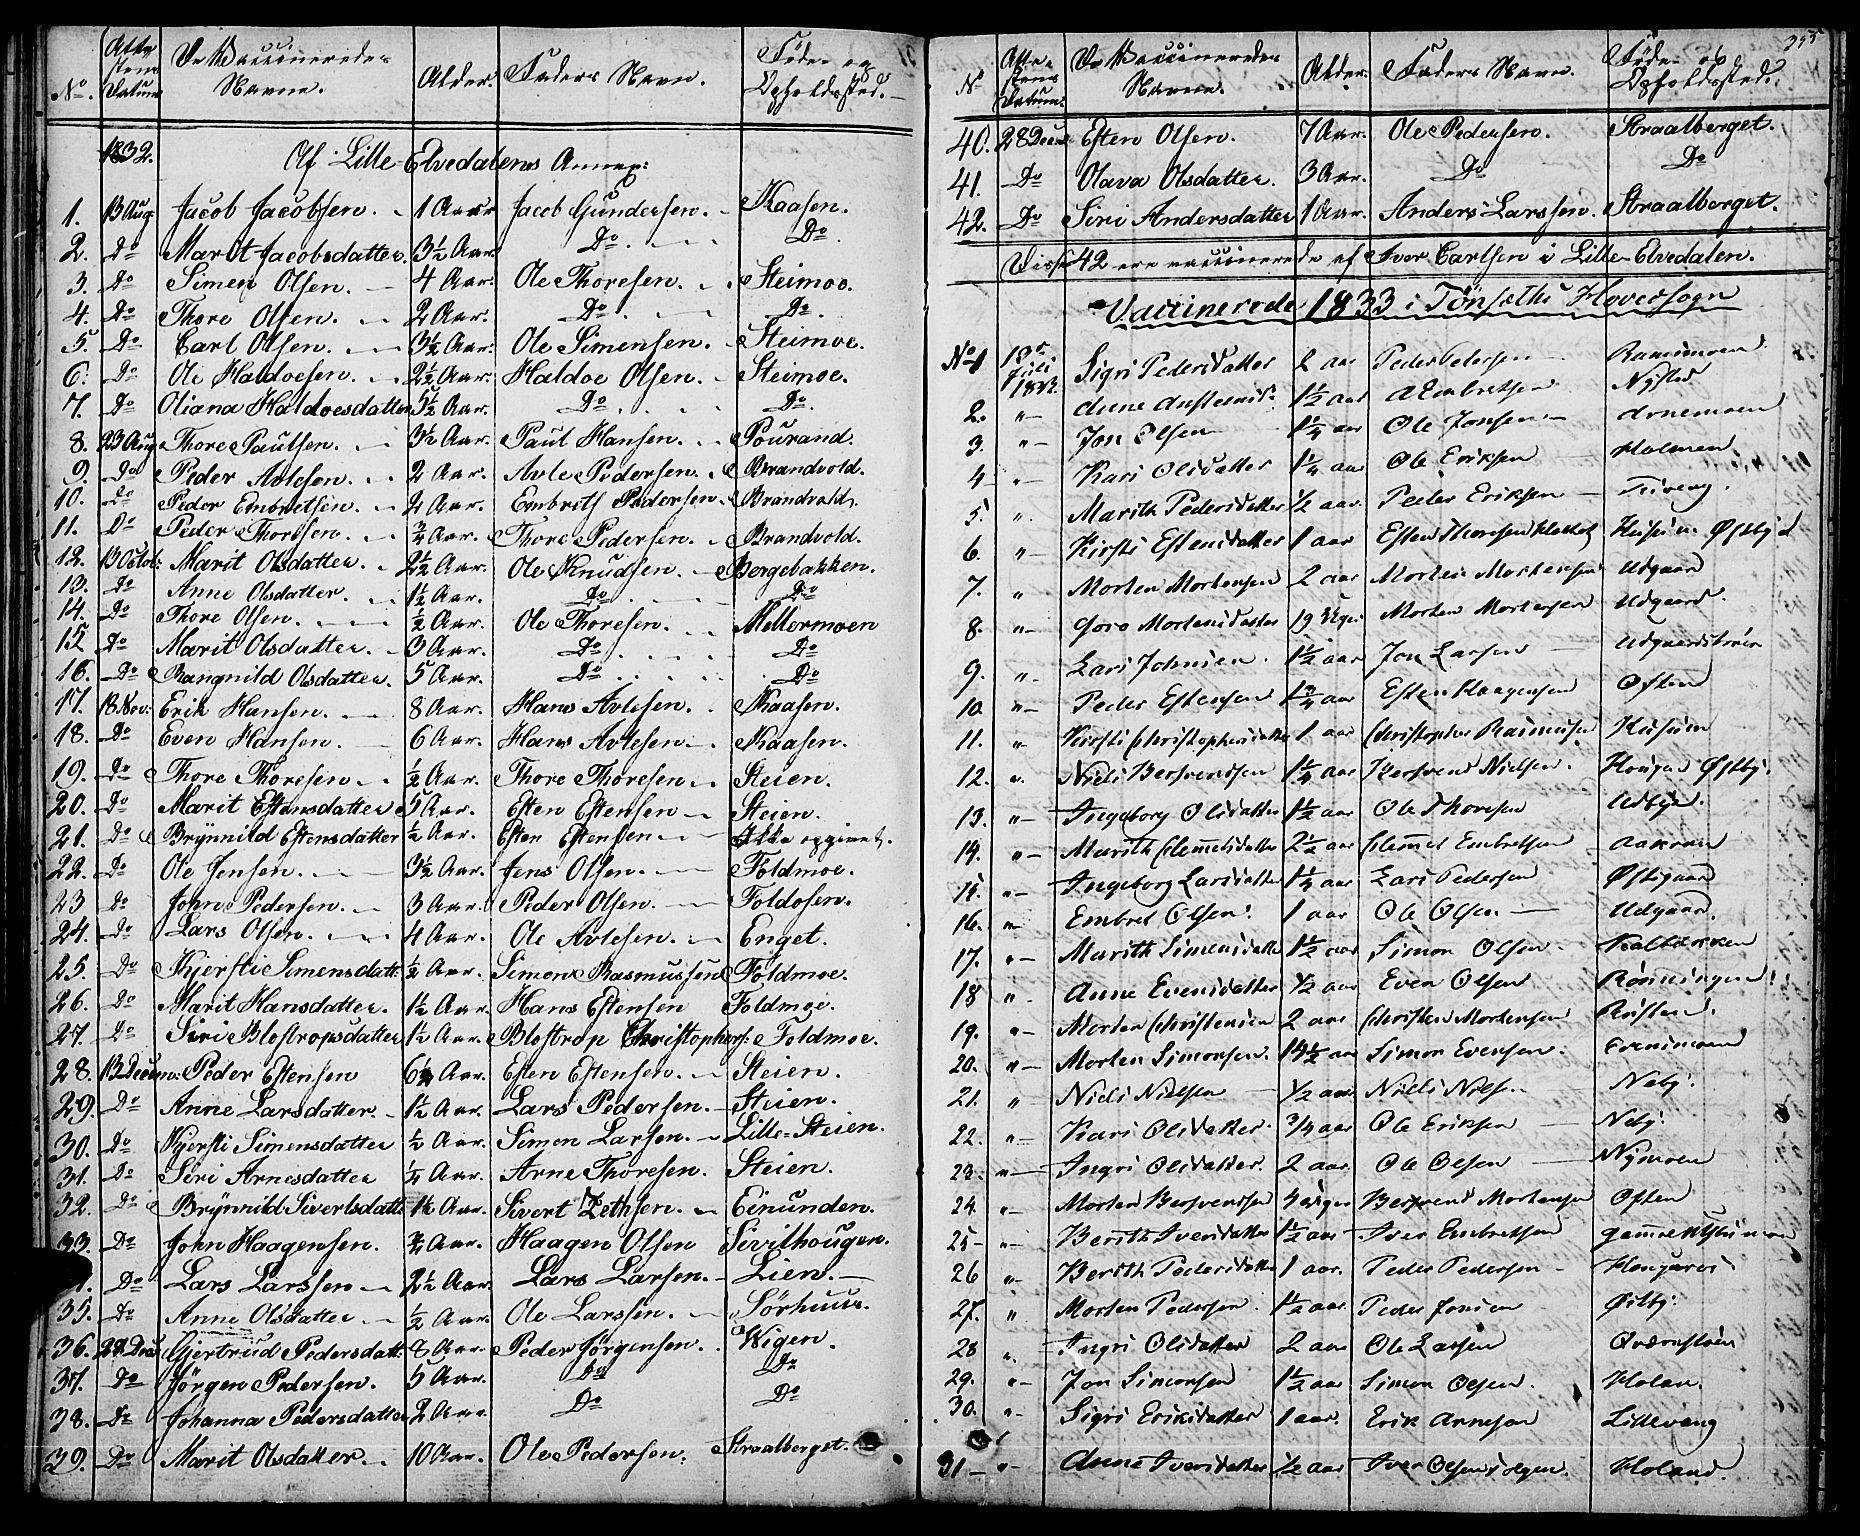 No. Attestens Datum De Vaccineredes Navne. Alder. Faders Navn. Føde- og Opholdssted.
1832. Af Lille-Elvedalens Annex:
1. 13 Aug: Jacob Jacobsen. 1 Aar Jacob Gundersen. Kaasen.
2. Do Marit Jacobsdatter. 3½ Aar. Do. Do.
3. Do Simen Olsen. 4 Aar. Ole Thoresen. Steimoe.
4. Do Thore Olsen. 2 Aar. Do. Do.
5. Do Carl Olsen. 3½ Aar. Ole Simensen. Steimoe.
6. Do Ole Haldoesen. 2½ Aar. Haldoe Olsen. Steimoe.
7. Do Oliana Haldoesdatter 5½ Aar. Do. Do.
8. 23 Aug Thore Paulsen. 3½ Aar. Paul Hansen. Pourand.
9. Do Peder Avlesen. 2 Aar. Avle Pedersen. Brandvold.
10. Do Peder Embretsen. 4 Aar. Embreth Pedersen. Brandvold.
11. Do Peder Thoresen. ¾ Aar. Thore Pedersen. Brandvold.
12. 13 Octob: Marit Olsdatter. 2½ Aar. Ole Knudsen. Bergebakken.
13. Do Anne Olsdatter. 1½ Aar. Do. Do
14. Do Thore Olsen. ½ Aar. Ole Thoresen. Mellermoen
15 Do Marit Olsdatter. 3 Aar. Do. Do
16. Do Rangnild Olsdatter. 5 Aar. Do. Do
17. 18 Nov: Erik Hansen. 8 Aar. Hans Avlesen. Kaasen.
18. Do Even Hansen. 6 Aar. Hans Avlesen. Kaasen.
19. Do Thore Thoresen. ½ Aar. Thore Thoresen. Steien.
20. Do Marit Estensdatter 5 Aar. Esten Estensen Steien.
21. Do Brynnild Estensdatter ½ Aar. Esten Estensen Ikke opgivet.
22. Do Ole Jensen. 3½ Aar. Jens Olsen. Foldmoe.
23 Do John Pedersen. 3 Aar. Peder Olsen. Foldosen.
24. Do Lars Olsen. 4 Aar. Ole Avlesen. Enget.
25. Do Kjersti Simensdatt: ½ Aar. Simen Rasmussen Foldmoe.
26. Do Marit Hansdatter. 1½ Aar. Hans Estensen Foldmoe.
27. Do Siri Blostropsdatter 1½ Aar. Blostrop Christophers: Foldmoe.
28. 13 Decem: Peder Estensen Aar. Esten Estensen. Steien.
29. Do Anne Larsdatter. 1½ Aar. Lars Pedersen. Steien.
30. Do Kjersti Simensdatter ½ Aar. Simen Larsen. Lille-Steien.
31. Do Siri Arnesdatter ¼ Aar. Arne Thoresen. Steien.
32. Do Brynnild Sivertsdatt 1½ Aar. Sivert Zethsen. Einunden.
33. Do John Haagensen. ¾ Aar. Haagen Olsen Sivilhougen.
Do Lars Larssen 2½ Aar. Lars Larsen. Lien.
35. Do Anne Olsdatter ½ Aar. Ole Larssen. Sørhuus.
36. 28 Dec: Gjertrud Pedersdatt: 8 Aar. Peder Jørgensen. Wigen.
37. Do Jørgen Pedersen. 5 Aar. Do Do
38. Do Johanna Pedersdatter 2 Aar. Do Do
39. Do Marit Olsdatter. 10 Aar. Ole Pedersen. Straalberget.
No Attestens Datum. De Vaccineredes Navne. Alder. Faders Navn. Føde- og Opholdssted.
40. 28 Decem: Esten Olsen. 7 Aar. Ole Pedersen. Straalberget.
41. Do Olava Olsdatter. 3 Aar. Do Do
42. Do Siri Andersdatter 1 Aar. Anders Larssen. Straalberget.
Disse 42 ere vaccinerede af Iver Carlsen i Lille-Elvedalen.
Vaccinerede 1833 i Tönsæths Hovedsogn
No 1 13de Juli 1833. Sigri Pedersdatter 2 aar Peder Pedersen Ramsmoen
2. " Anne 1½ aar Embretsen Nysted
3. " Jon Olsen 1¼ aar Ole Jonsen Arnemoen
4 " Kari Olsdatter 1¼ aar Ole Eriksen Holmen
5. " Marith Pedersdatter ½ aar. Peder Eriksen
6. " Kirsti Estensdatter 1 aar Esten Thoresen Husum Østby
7. " Morten Mortensen 2 aar Morten Mortensen Udgaard
8. " Goro Mortensdatter 19 Uger Morten Mortensen Udgaard.
9. " Lars Johnsen. 1½ aar Jon Larsen
10. " Peder Estensen 1¾ aar Esten Haagensen Østen
11. " Kirsti Christophersdatter 1 aar Christopher Rasmussen Husum
12. " Niels Bersvendsen 1¼ aar Bersvend Nielsen. Hougen Østby.
13. " Ingeborg Olsdatter 1½ aar Ole Thoresen Udbye.
14. " Marith Clemetsdatter 2½ aar Clemet Embretsen Aakroen
15. " Ingeborg Larsdatter 1¼ aar Lars Pedersen Østgaard
16. " Embret Olsen. 1 aar Ole Olsen Udgaard.
17. " Marith Simensdatter 1½ aar Simon Olsen Kalbækken
18 " Anne Evensdatter ½ aar Even Olsen Rønningen
19. " Morten Christensen 2 aar Christen Mortensen Røsten.
20. " Morten Simonsen. 1½ aar Simon Evensen. Evensmoen
21. " Niels Nielsen ½ aar Niels Niels Neby.
22. " Kari Olsdatter. ¾ aar Ole Eriksen Neby.
23. " Ingri Olsdatter. 2 aar. Ole Olsen Nymoen
24. " Morten Bersvendsen Uger Bersvend Mortensen Østen
25 " Berith Iversdatter 1½ aar Iver Embretsen
26 " Berith Pedersdatter 1 aar. Peder Pedersen
27. " Morten Pedersen. 1½ aar Peder Jonsen Østby.
28 " Ingri Olsdatter 2 aar Ole Larsen
29. " Jon Simonsen 1½ aar Simon Olsen. Holan.
30. " Sigri Eriksdatter 1 aar. Erik Arnesen Lillevang
31 " Anne Iversdatter ½ aar Iver Olsen Holand.